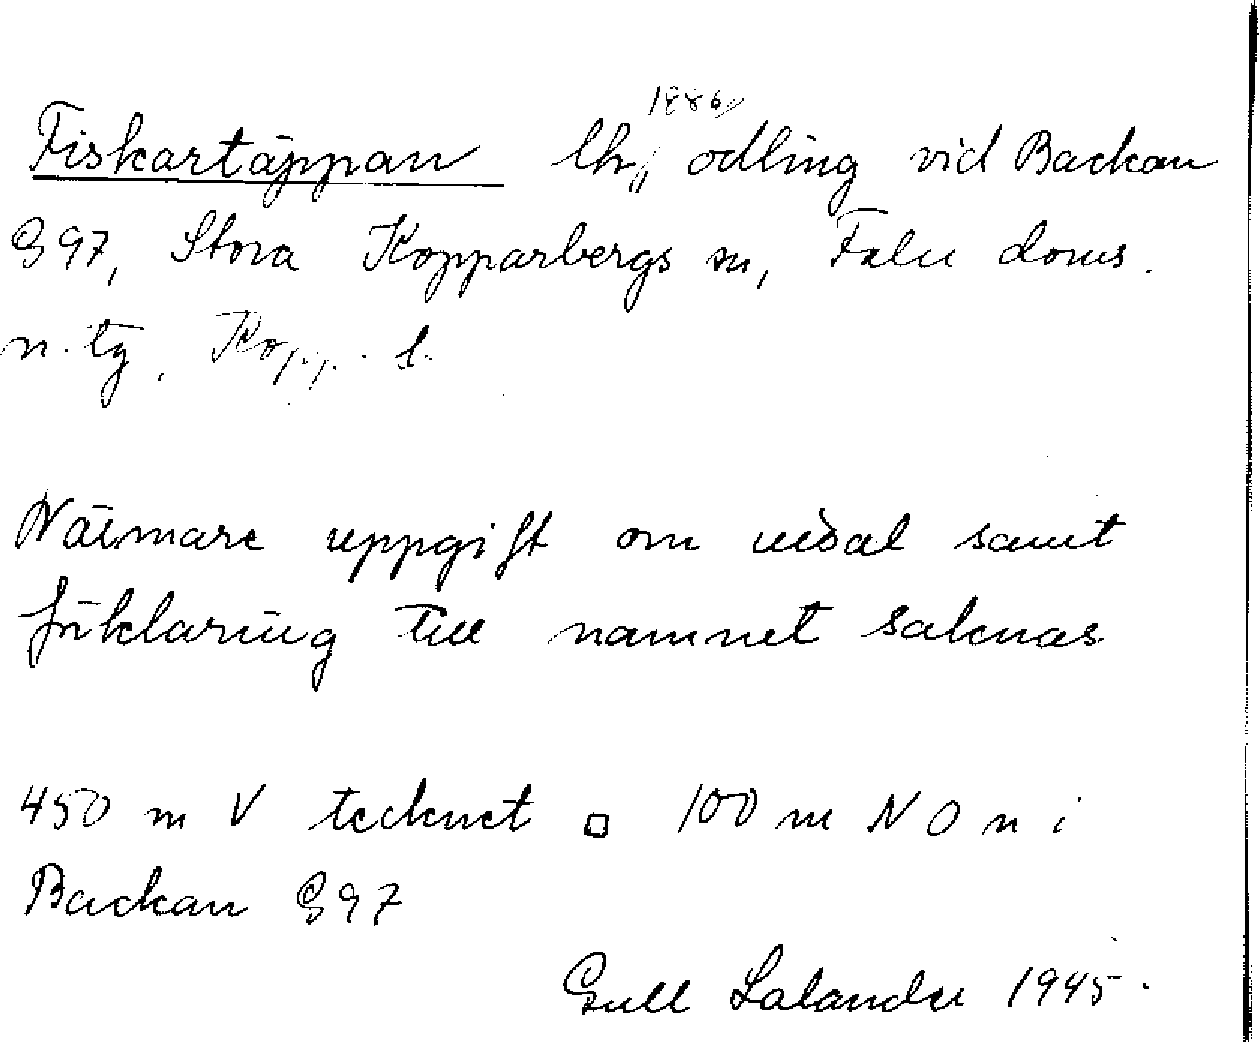 1886
Fiskartäppan lh, odling vid Backan
G 97, Stora Kopparbergs sn, Falu doms.
n. tg, Kopp. l.
Närmare uppgift om uttal samt
förklaring till namnet saknas
450 m V tecknet □ 100 m N O n i
Backan G 97
Gull Lalander 1945.